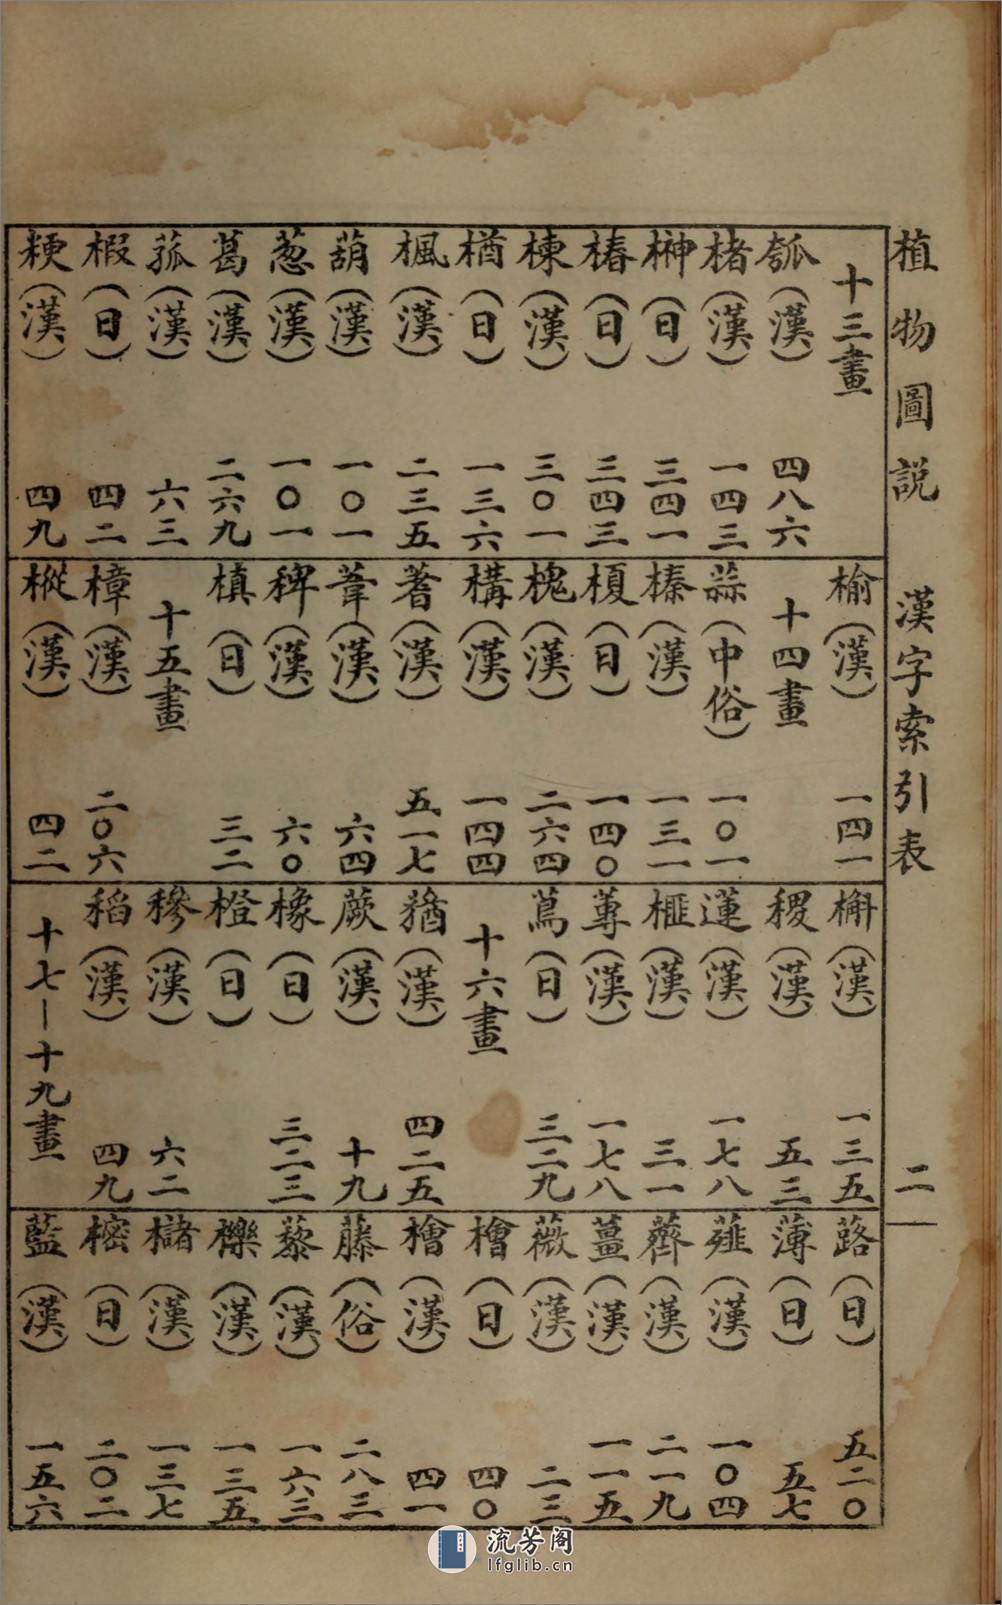 植物圖説 漢字索引表 二
十三畫
瓠（漢） 四八六
楮（漢） 一四三
榊（日） 三四一
椿（日） 三四三
楝（漢） 三〇一
楢（日） 一三六
楓（漢） 二三五
葫（漢） 一〇一
葱（漢） 一〇一
葛（漢） 二六九
菰（漢） 六三
椵（日） 四二
粳（漢） 四九
榆（漢） 一四一
十四畫
蒜（中俗） 一〇一
榛（漢） 一三一
榎（日） 一四〇
槐（漢） 二六四
構（漢） 一四四
蓍（漢） 五一七
葦（漢） 六四
稗（漢） 六〇
槙（日） 三二
十五畫
樟（漢） 二〇六
樅（漢） 四二
槲（漢） 一三五
稷（漢） 五三
蓮（漢） 一七八
榧（漢） 三一
蓴（漢） 一七八
蔦（日） 三二九
十六畫
蕕（漢） 四二五
蕨（漢） 十九
橡（日） 三二三
橙（日）
穇（漢） 六二
稻（漢） 四九
十七－十九畫
蕗（日） 五二〇
薄（日） 五七
薤（漢） 一〇四
薺（漢） 二一九
薑（漢） 一一五
薇（漢） 二三
檜（日） 四〇
檜（漢） 四一
藤（俗） 二八三
藜（漢） 一六三
櫟（漢） 一三五
櫧（漢） 一三七
樒（日） 二〇二
藍（漢） 一五六
流芳阁
lfglib.cn